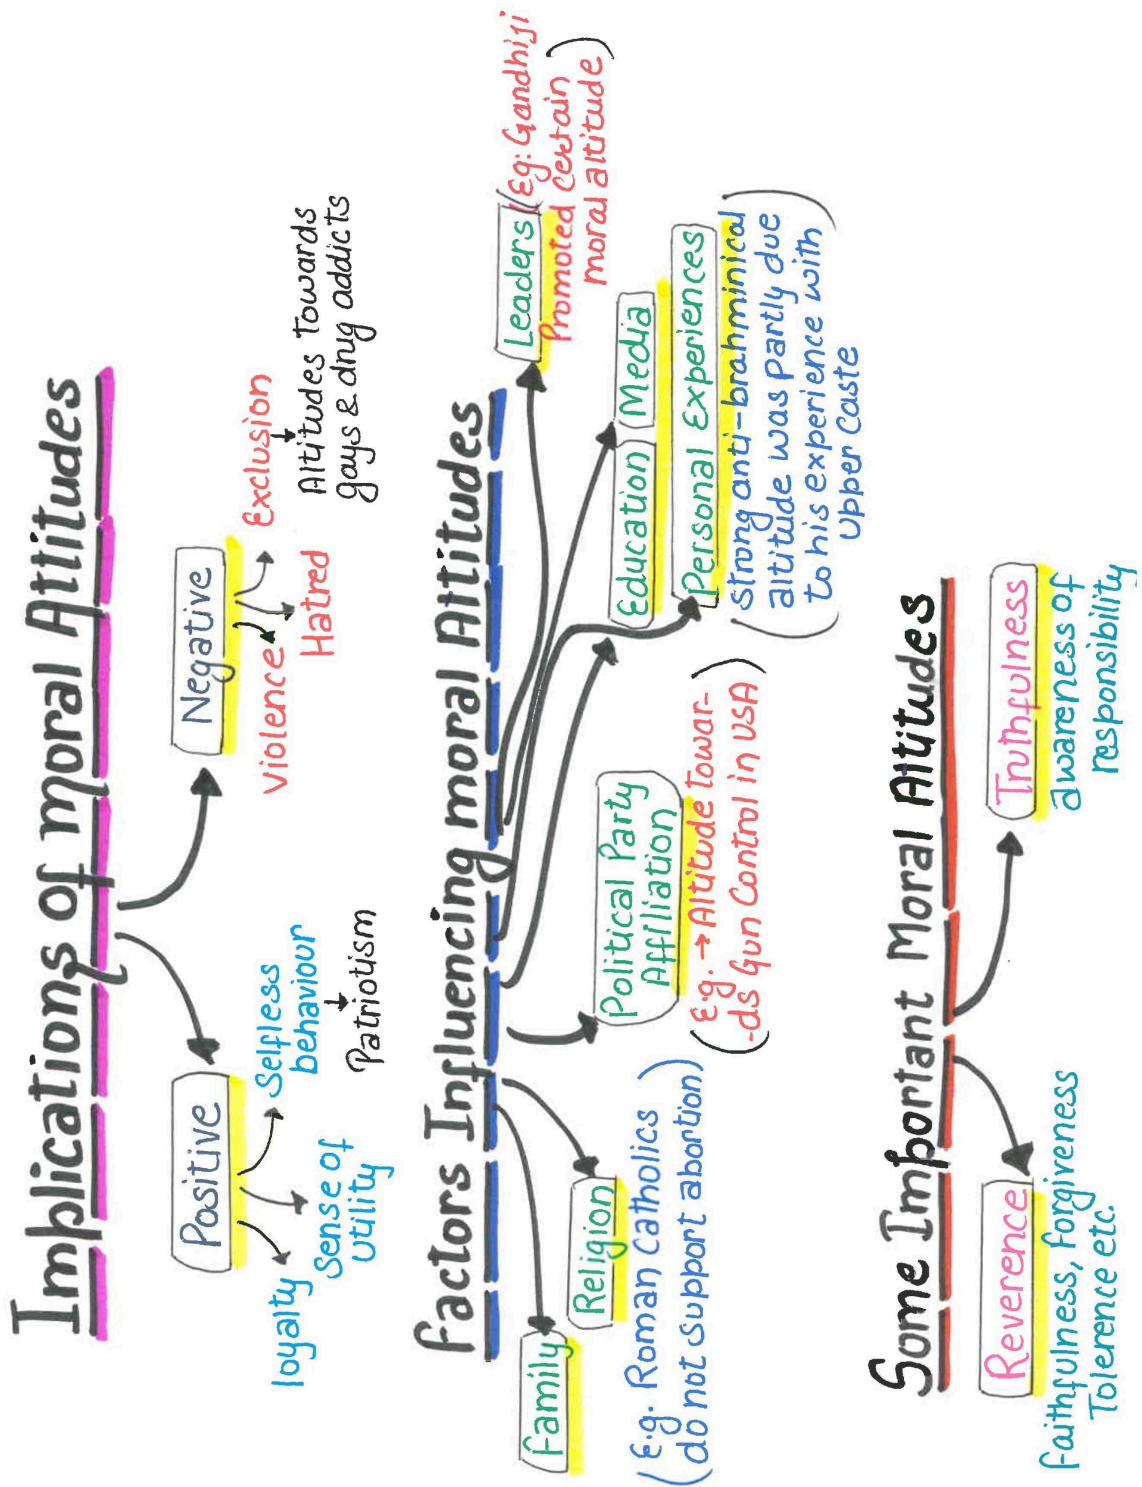 Implications of moral Attitudes
Positive
Negative
loyalty
Sense of
Utility
Selfless
behaviour
Patriotism
Violence
Hatred
Exclusion
Attitudes Towards
gays & drug addicts
Factors Influencing moral Attitudes
Family
Religion
(E.g. Roman Catholics
do not support abortion)
Political Party
Affiliation
(E.g. → Attitude towar-
-ds Gun Control in USA)
Education
Media
Personal Experiences
(strong anti-brahminical
attitude was partly due
to his experience with
Upper Caste)
Leaders
(Eg: Gandhiji
Promoted certain
moral attitude)
Some Important Moral Attitudes
Reverence
Faithfulness, Forgiveness
Tolerence etc.
Truthfulness
awareness of
responsibility